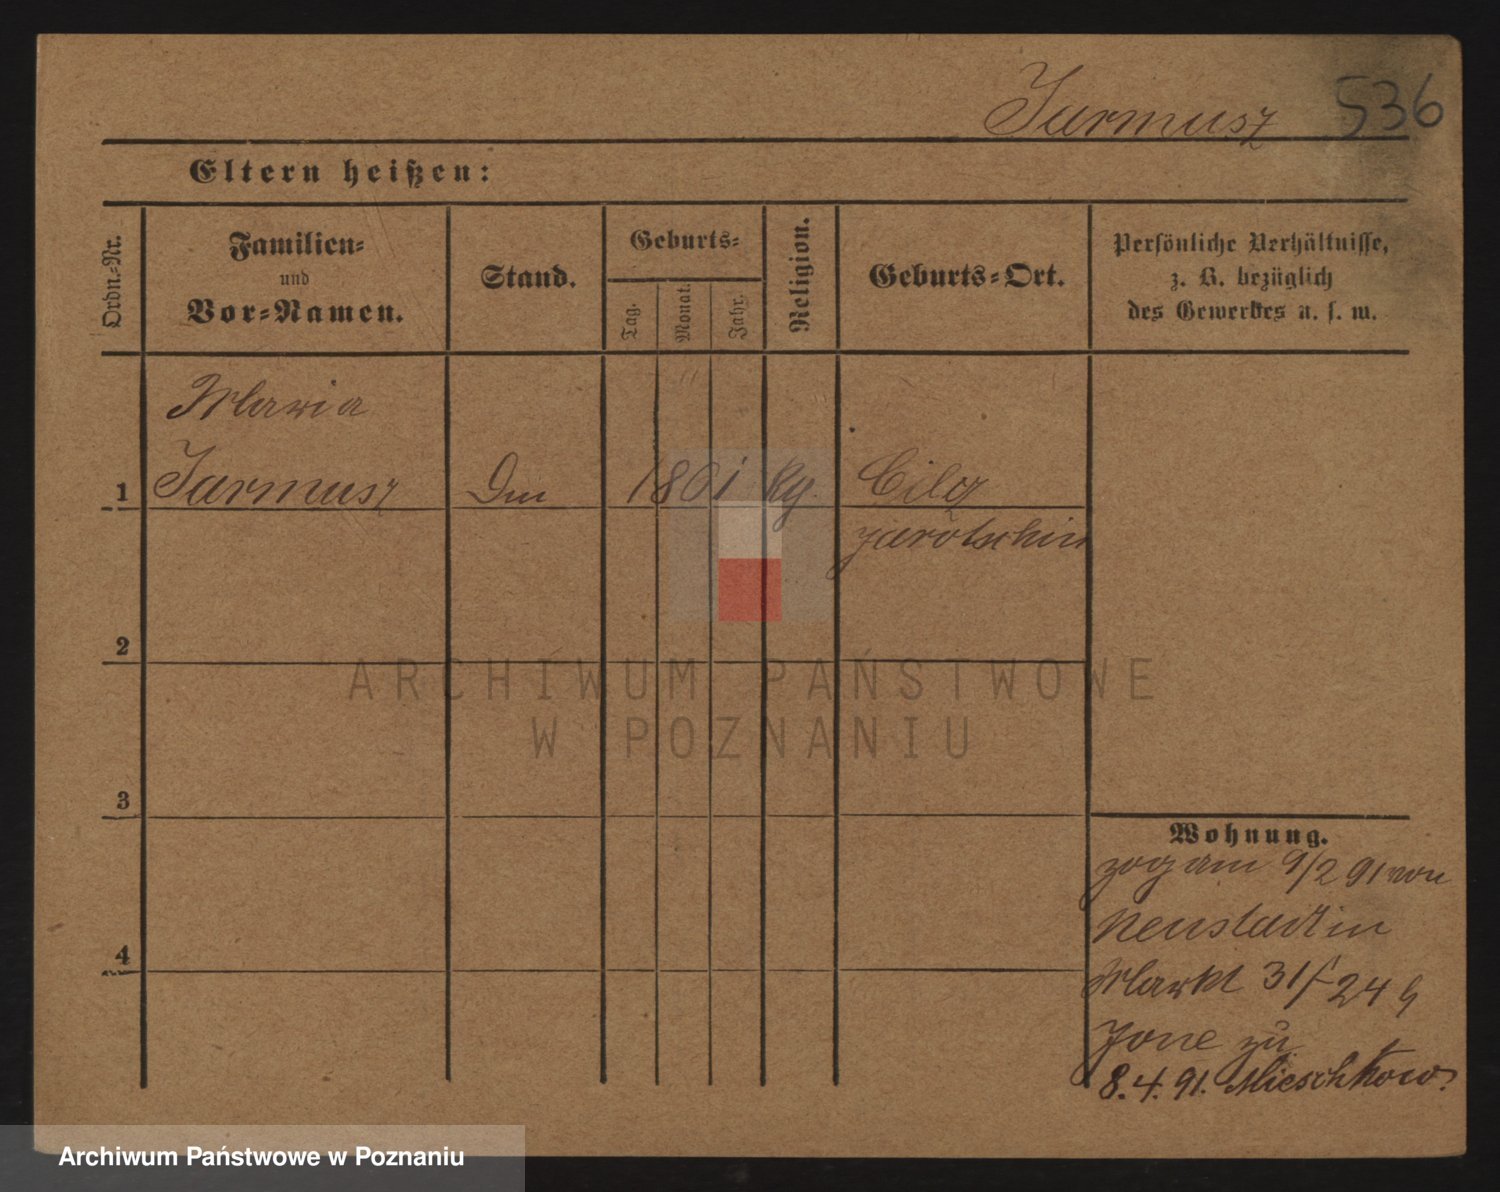 Jarmusz 536
Eltern heißen:
Ordn.=Nr.
Familien=
und
Vor=Namen.
Stand.
Geburts=
Tag.
Monat.
Jahr.
Religion.
Geburts=Ort.
Persönliche Verhältnisse,
z. B. bezüglich
des Gewerbes u. s. w.
Maria
1 Jarmusz 1861
Jarotschin
2
3
4
Wohnung.
zog am 9/2 91 von
Neustadt in
Markt 31/
zu
8.4.91. Mieschkow
ARCHIWUM PAŃSTWOWE
W POZNANIU
Archiwum Państwowe w Poznaniu